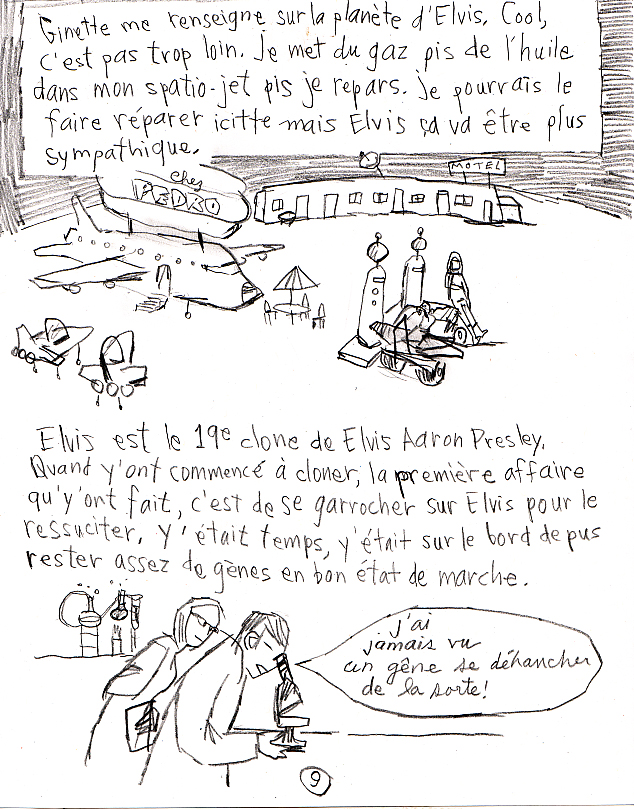 Ginette me renseigne sur la planète d'Elvis. Cool,
c'est pas trop loin. Je met du gaz pis de l'huile
dans mon spatio-jet pis je repars. Je pourrais le
faire réparer icitte mais Elvis ça va être plus
sympathique.
chez
PEDRO
MOTEL
Elvis est le 19e clone de Elvis Aaron Presley.
Quand y'ont commencé à cloner, la première affaire
qu'y'ont fait, c'est de se garrocher sur Elvis pour le
ressuciter. Y'était temps, y'était sur le bord de pus
rester assez de gènes en bon état de marche.
j'ai
jamais vu
un gène se déhancher
de la sorte!
9